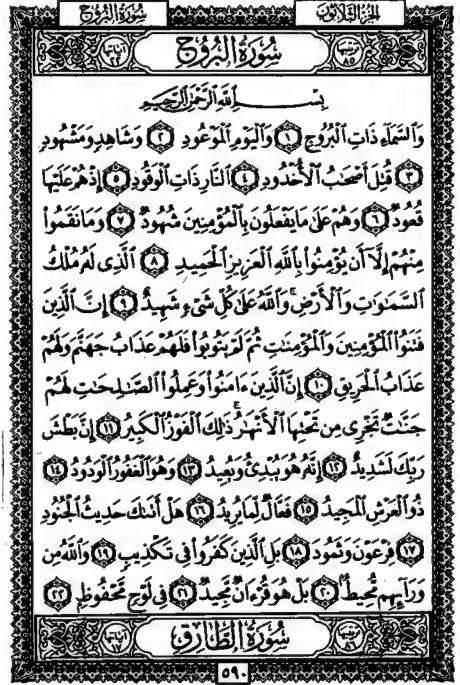 الجزء الثلاثون سورة البروج
ترتيبها ٨٥ سُورَةُ البُرُوجِ آياتها ٢٢
بِسْمِ اللَّهِ الرَّحْمَٰنِ الرَّحِيمِ
وَالسَّمَاءِ ذَاتِ الْبُرُوجِ ١ وَالْيَوْمِ الْمَوْعُودِ ٢ وَشَاهِدٍ وَمَشْهُودٍ
٣ قُتِلَ أَصْحَابُ الْأُخْدُودِ ٤ النَّارِ ذَاتِ الْوَقُودِ ٥ إِذْ هُمْ عَلَيْهَا
قُعُودٌ ٦ وَهُمْ عَلَىٰ مَا يَفْعَلُونَ بِالْمُؤْمِنِينَ شُهُودٌ ٧ وَمَا نَقَمُوا
مِنْهُمْ إِلَّا أَن يُؤْمِنُوا بِاللَّهِ الْعَزِيزِ الْحَمِيدِ ٨ الَّذِي لَهُ مُلْكُ
السَّمَٰوَٰتِ وَالْأَرْضِ ۚ وَاللَّهُ عَلَىٰ كُلِّ شَيْءٍ شَهِيدٌ ٩ إِنَّ الَّذِينَ
فَتَنُوا الْمُؤْمِنِينَ وَالْمُؤْمِنَٰتِ ثُمَّ لَمْ يَتُوبُوا فَلَهُمْ عَذَابُ جَهَنَّمَ وَلَهُمْ
عَذَابُ الْحَرِيقِ ١٠ إِنَّ الَّذِينَ ءَامَنُوا وَعَمِلُوا الصَّٰلِحَٰتِ لَهُمْ
جَنَّٰتٌ تَجْرِي مِن تَحْتِهَا الْأَنْهَٰرُ ۚ ذَٰلِكَ الْفَوْزُ الْكَبِيرُ ١١ إِنَّ بَطْشَ
رَبِّكَ لَشَدِيدٌ ١٢ إِنَّهُ هُوَ يُبْدِئُ وَيُعِيدُ ١٣ وَهُوَ الْغَفُورُ الْوَدُودُ ١٤
ذُو الْعَرْشِ الْمَجِيدُ ١٥ فَعَّالٌ لِّمَا يُرِيدُ ١٦ هَلْ أَتَىٰكَ حَدِيثُ الْجُنُودِ
١٧ فِرْعَوْنَ وَثَمُودَ ١٨ بَلِ الَّذِينَ كَفَرُوا فِي تَكْذِيبٍ ١٩ وَاللَّهُ مِن
وَرَائِهِم مُّحِيطٌ ٢٠ بَلْ هُوَ قُرْءَانٌ مَّجِيدٌ ٢١ فِي لَوْحٍ مَّحْفُوظٍ ٢٢
ترتيبها ٨٦ سُورَةُ الطَّارِقِ آياتها ١٧
٥٩٠